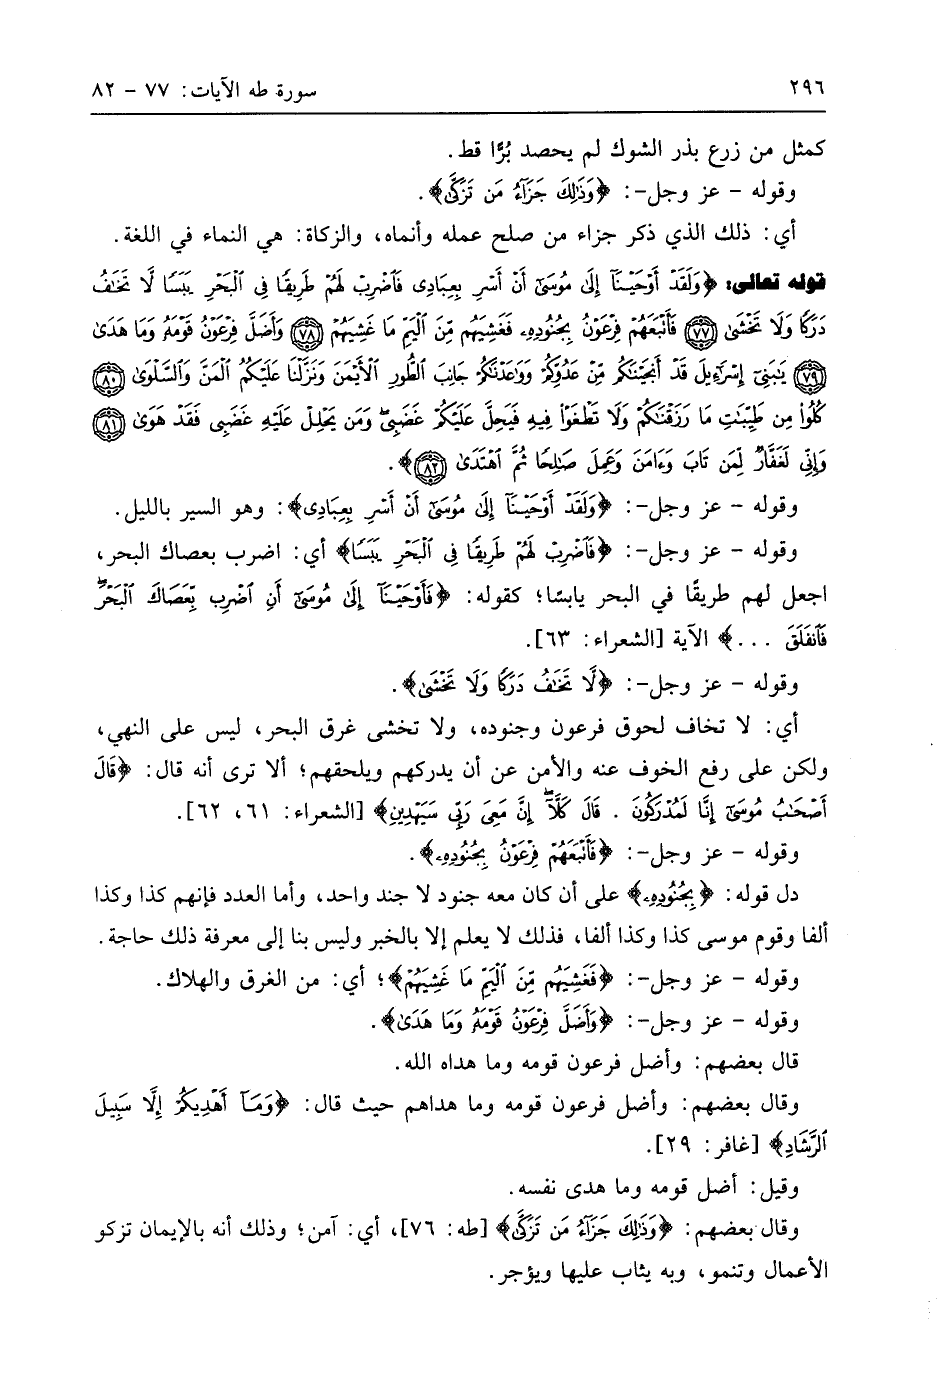 ٢٩٦ سورة طه الآيات: ٧٧ - ٨٢
كمثل من زرع بذر الشوك لم يحصد بُرًّا قط.
وقوله - عز وجل-: ﴿وَذَٰلِكَ جَزَآءُ مَن تَزَكَّىٰ﴾.
أي: ذلك الذي ذكر جزاء من صلح عمله وأنماه، والزكاة: هي النماء في اللغة.
قوله تعالى: ﴿وَلَقَدْ أَوْحَيْنَآ إِلَىٰ مُوسَىٰٓ أَنْ أَسْرِ بِعِبَادِى فَٱضْرِبْ لَهُمْ طَرِيقًا فِى ٱلْبَحْرِ يَبَسًا لَّا تَخَٰفُ
دَرَكًا وَلَا تَخْشَىٰ ٧٧ فَأَتْبَعَهُمْ فِرْعَوْنُ بِجُنُودِهِۦ فَغَشِيَهُم مِّنَ ٱلْيَمِّ مَا غَشِيَهُمْ ٧٨ وَأَضَلَّ فِرْعَوْنُ قَوْمَهُۥ وَمَا هَدَىٰ
٧٩ يَٰبَنِىٓ إِسْرَٰٓءِيلَ قَدْ أَنجَيْنَٰكُم مِّنْ عَدُوِّكُمْ وَوَٰعَدْنَٰكُمْ جَانِبَ ٱلطُّورِ ٱلْأَيْمَنَ وَنَزَّلْنَا عَلَيْكُمُ ٱلْمَنَّ وَٱلسَّلْوَىٰ ٨٠
كُلُوا۟ مِن طَيِّبَٰتِ مَا رَزَقْنَٰكُمْ وَلَا تَطْغَوْا۟ فِيهِ فَيَحِلَّ عَلَيْكُمْ غَضَبِى ۖ وَمَن يَحْلِلْ عَلَيْهِ غَضَبِى فَقَدْ هَوَىٰ ٨١
وَإِنِّى لَغَفَّارٌ لِّمَن تَابَ وَءَامَنَ وَعَمِلَ صَٰلِحًا ثُمَّ ٱهْتَدَىٰ ٨٢﴾.
وقوله - عز وجل-: ﴿وَلَقَدْ أَوْحَيْنَآ إِلَىٰ مُوسَىٰٓ أَنْ أَسْرِ بِعِبَادِى﴾: وهو السير بالليل.
وقوله - عز وجل-: ﴿فَٱضْرِبْ لَهُمْ طَرِيقًا فِى ٱلْبَحْرِ يَبَسًا﴾ أي: اضرب بعصاك البحر،
اجعل لهم طريقًا في البحر يابسًا؛ كقوله: ﴿فَأَوْحَيْنَآ إِلَىٰ مُوسَىٰٓ أَنِ ٱضْرِب بِّعَصَاكَ ٱلْبَحْرَ ۖ
فَٱنفَلَقَ ...﴾ الآية [الشعراء: ٦٣].
وقوله - عز وجل-: ﴿لَّا تَخَٰفُ دَرَكًا وَلَا تَخْشَىٰ﴾.
أي: لا تخاف لحوق فرعون وجنوده، ولا تخشى غرق البحر، ليس على النهي،
ولكن على رفع الخوف عنه والأمن عن أن يدركهم ويلحقهم؛ ألا ترى أنه قال: ﴿قَالَ
أَصْحَٰبُ مُوسَىٰٓ إِنَّا لَمُدْرَكُونَ . قَالَ كَلَّآ ۖ إِنَّ مَعِىَ رَبِّى سَيَهْدِينِ﴾ [الشعراء: ٦١، ٦٢].
وقوله - عز وجل-: ﴿فَأَتْبَعَهُمْ فِرْعَوْنُ بِجُنُودِهِۦ﴾.
دل قوله: ﴿بِجُنُودِهِۦ﴾ على أن كان معه جنود لا جند واحد، وأما العدد فإنهم كذا وكذا
ألفا وقوم موسى كذا وكذا ألفا، فذلك لا يعلم إلا بالخبر وليس بنا إلى معرفة ذلك حاجة.
وقوله - عز وجل-: ﴿فَغَشِيَهُم مِّنَ ٱلْيَمِّ مَا غَشِيَهُمْ﴾؛ أي: من الغرق والهلاك.
وقوله - عز وجل-: ﴿وَأَضَلَّ فِرْعَوْنُ قَوْمَهُۥ وَمَا هَدَىٰ﴾.
قال بعضهم: وأضل فرعون قومه وما هداه الله.
وقال بعضهم: وأضل فرعون قومه وما هداهم حيث قال: ﴿وَمَآ أَهْدِيكُمْ إِلَّا سَبِيلَ
ٱلرَّشَادِ﴾ [غافر: ٢٩].
وقيل: أضل قومه وما هدى نفسه.
وقال بعضهم: ﴿وَذَٰلِكَ جَزَآءُ مَن تَزَكَّىٰ﴾ [طه: ٧٦]، أي: آمن؛ وذلك أنه بالإيمان تزكو
الأعمال وتنمو، وبه يثاب عليها ويؤجر.